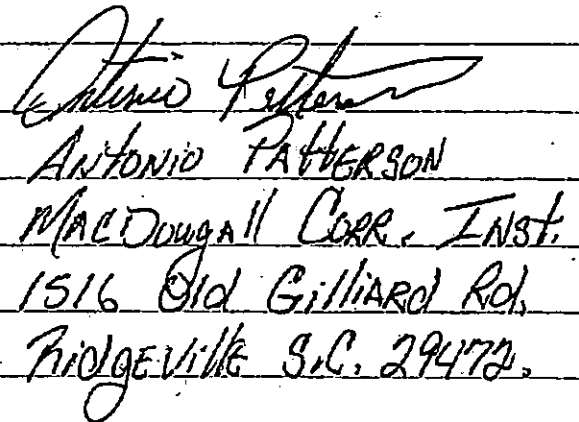 Antonio Patterson
Antonio Patterson
MacDougall Corr. Inst.
1516 Old Gilliard Rd.
Ridgeville S.C. 29472.